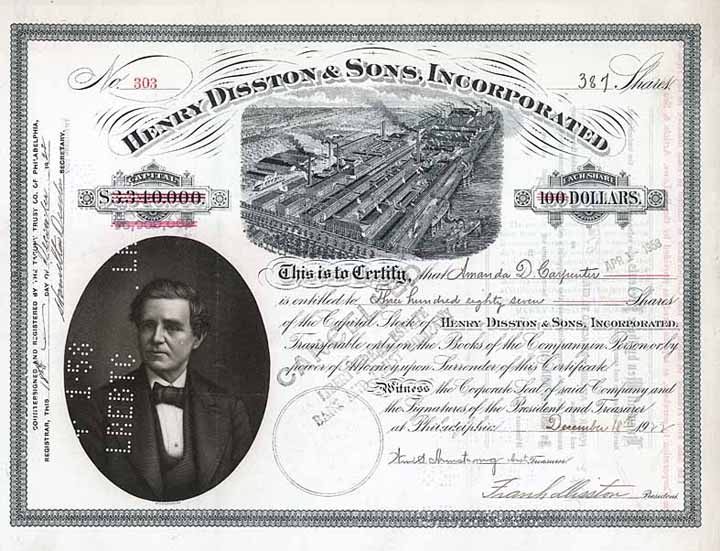 No. 303
387 Shares
HENRY DISSTON & SONS, INCORPORATED
CAPITAL
$3,340,000.
EACH SHARE
100 DOLLARS.
This is to Certify, that Amanda D. Carpenter
APR 1 - 1958
is entitled to Three hundred eighty seven Shares
of the Capital Stock of HENRY DISSTON & SONS, INCORPORATED.
Transferable only on the Books of the Company in Person or by
power of Attorney upon Surrender of this Certificate
Witness the Corporate Seal of said Company and
the Signatures of the President and Treasurer
at Philadelphia December 18 1922
Armstrong Asst Treasurer
Frank Disston President.
COUNTERSIGNED AND REGISTERED BY THE TRUST CO. OF PHILADELPHIA,
REGISTRAR, THIS DAY OF December 19
SECRETARY.
CANCELLED
BANK AND
1-58